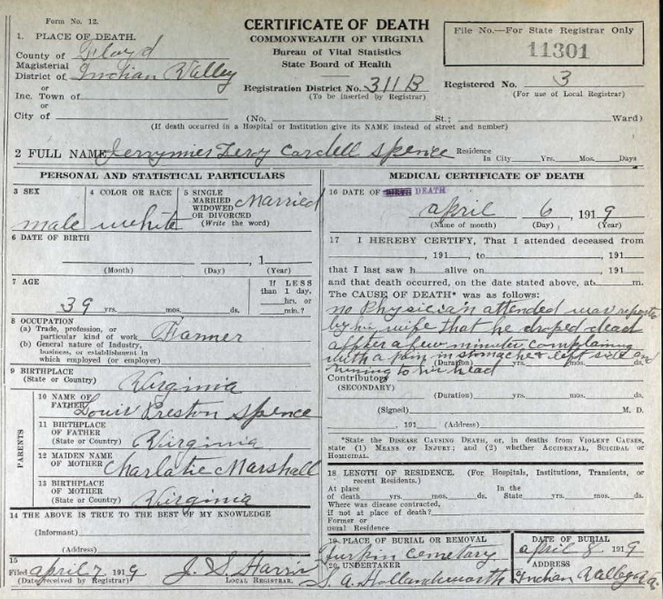 Form No. 12.
CERTIFICATE OF DEATH
COMMONWEALTH OF VIRGINIA
Bureau of Vital Statistics
State Board of Health
File No.—For State Registrar Only
11301
1. PLACE OF DEATH.
County of Floyd
Magisterial
District of Indian Valley
or
Inc. Town of
or
City of
Registration District No. 311B
(To be inserted by Registrar)
Registered No. 3
(For use of Local Registrar)
(No. St.; Ward)
(If death occurred in a Hospital or Institution give its NAME instead of street and number)
2 FULL NAME Cardell Spence
Residence
In City Yrs. Mos. Days
PERSONAL AND STATISTICAL PARTICULARS
3 SEX
male
4 COLOR OR RACE
white
5 SINGLE
MARRIED
WIDOWED
OR DIVORCED
(Write the word)
Married
6 DATE OF BIRTH
, 1
(Month) (Day) (Year)
7 AGE
39 yrs. mos. ds.
If LESS
than 1 day,
hrs. or
min.?
8 OCCUPATION
(a) Trade, profession, or
particular kind of work Farmer
(b) General nature of Industry,
business, or establishment in
which employed (or employer)
9 BIRTHPLACE
(State or Country) Virginia
PARENTS
10 NAME OF
FATHER Preston Spence
11 BIRTHPLACE
OF FATHER
(State or Country) Virginia
12 MAIDEN NAME
OF MOTHER Marshall
13 BIRTHPLACE
OF MOTHER
(State or Country) Virginia
14 THE ABOVE IS TRUE TO THE BEST OF MY KNOWLEDGE
(Informant)
(Address)
15
Filed April 7 1919
(Date received by Registrar)
J. S. Harris
LOCAL REGISTRAR.
MEDICAL CERTIFICATE OF DEATH
16 DATE OF BIRTH DEATH
april 6, 1919
(Name of month) (Day) (Year)
17 I HEREBY CERTIFY, That I attended deceased from
, 191 , to , 191
that I last saw h alive on , 191
and that death occurred, on the date stated above, at m.
The CAUSE OF DEATH* was as follows:
no Physician attended was reported
by his wife that he droped dead
after a few minutes complaining
with a pain in stomache & left side
runing to his head
(Duration) yrs. mos. ds.
Contributory
(SECONDARY)
(Duration) yrs. mos. ds.
(Signed) M. D.
, 191 (Address)
*State the DISEASE CAUSING DEATH, or, in deaths from VIOLENT CAUSES,
state (1) MEANS OF INJURY; and (2) whether ACCIDENTAL, SUICIDAL or
HOMICIDAL.
18 LENGTH OF RESIDENCE. (For Hospitals, Institutions, Transients, or
recent Residents.)
At place
of death yrs. mos. ds.
In the
State yrs. mos. ds.
Where was disease contracted,
if not at place of death?
Former or
usual Residence
19. PLACE OF BURIAL OR REMOVAL
cemetary
DATE OF BURIAL
april 8 1919
20. UNDERTAKER
S. A. Hollandsworth
ADDRESS
Indian Valley Va.